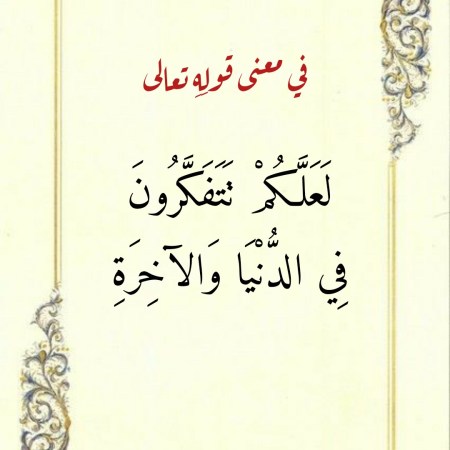 في معنى قولِه تعالى
لَعَلَّكُمْ تَتَفَكَّرُونَ
فِي الدُّنْيَا وَالآخِرَةِ